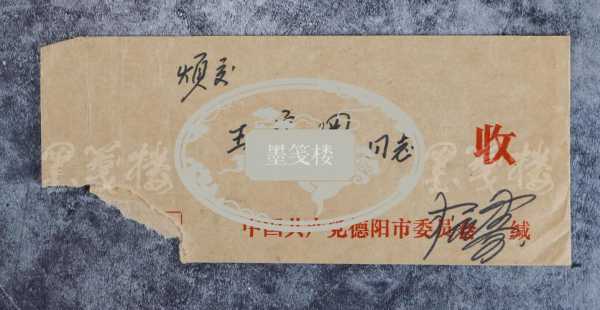 烦交
王 同志 收
中国共产党德阳市委员会 缄
墨笺楼
墨笺楼
墨笺楼